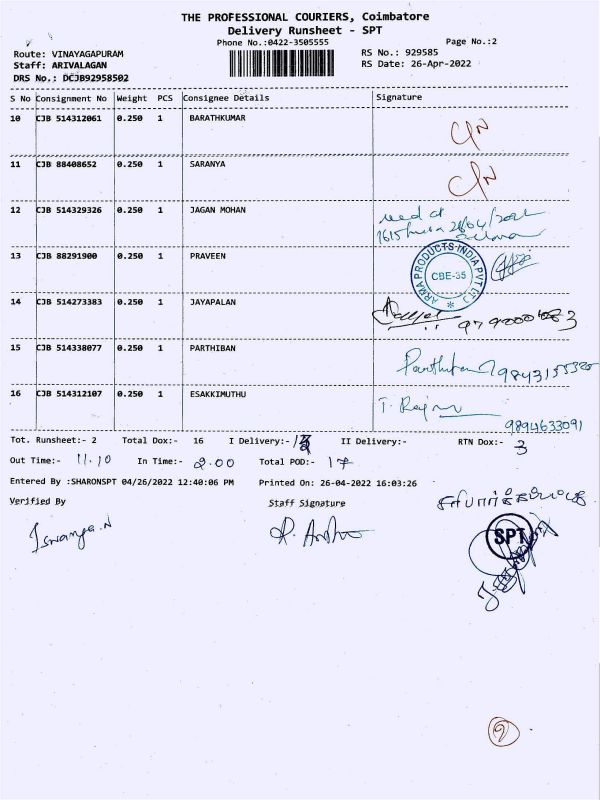 THE PROFESSIONAL COURIERS, Coimbatore
Delivery Runsheet - SPT
Phone No.:0422-3505555 Page No.:2
Route: VINAYAGAPURAM RS No.: 929585
Staff: ARIVALAGAN RS Date: 26-Apr-2022
DRS No.: DCJB92958502
S No Consignment No Weight PCS Consignee Details Signature
10 CJB 514312061 0.250 1 BARATHKUMAR
11 CJB 88408652 0.250 1 SARANYA
12 CJB 514329326 0.250 1 JAGAN MOHAN
13 CJB 88291900 0.250 1 PRAVEEN
ARMA PRODUCTS INDIA PVT LTD
CBE-35
14 CJB 514273383 0.250 1 JAYAPALAN
15 CJB 514338077 0.250 1 PARTHIBAN
Parthiban
16 CJB 514312107 0.250 1 ESAKKIMUTHU
9894633091
Tot. Runsheet:- 2 Total Dox:- 16 I Delivery:- II Delivery:- RTN Dox:- 3
Out Time:- 11.10 In Time:- 2.00 Total POD:- 17
Entered By :SHARONSPT 04/26/2022 12:40:06 PM Printed On: 26-04-2022 16:03:26
Verified By Staff Signature
SPT